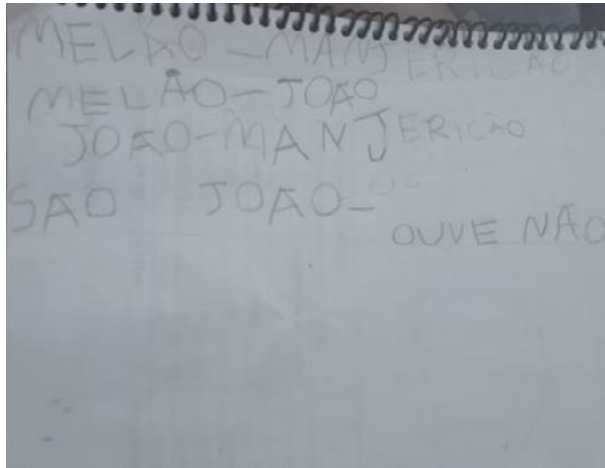 MELÃO - MANJERICÃO
MELÃO - JOÃO
JOÃO - MANJERICÃO
SÃO JOÃO -
OUVE NÃO